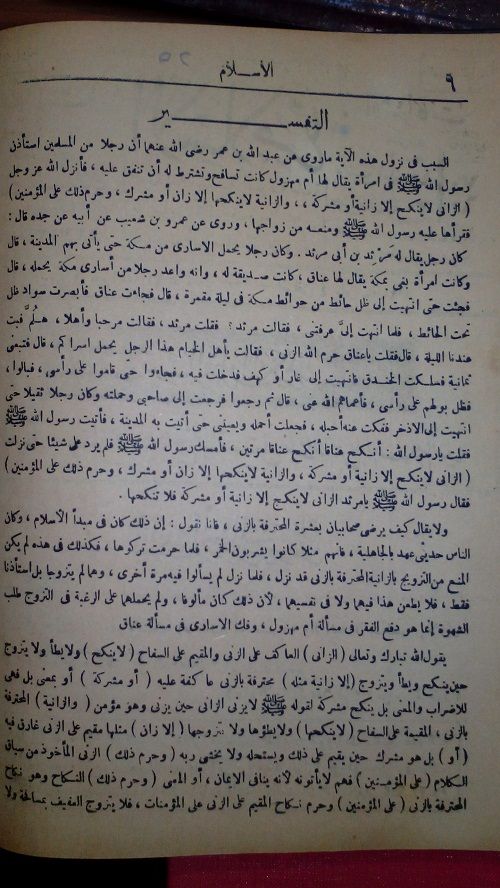 ٩
الأسلام
التفسير
السبب فى نزول هذه الآية ماروى عن عبد الله بن عمر رضى الله عنهما أن رجلا من المسلمين استأذن
رسول الله ﷺ فى امرأة يقال لها أم مهزول كانت تسافح وتشترط له أن تنفق عليه ، فأنزل الله عز وجل
( الزانى لاينكح إلا زانية أو مشركة ، ، والزانية لاينكحها إلا زان أو مشرك ، وحرم ذلك على المؤمنين )
فقرأها عليه رسول الله ﷺ ومنعه من زواجها ، وروى عن عمرو بن شعيب عن أبيه عن جده قال :
كان رجل يقال له مرثد بن أبى مرثد . وكان رجلا يحمل الاسارى من مكة حتى يأتى بهم المدينة ، قال
وكانت امرأة بغى بمكة يقال لها عناق ، كانت صديقة له ، وانه واعد رجلا من أسارى مكة يحمله ، قال
فجئت حتى انتهيت إلى ظل حائط من حوائط مكة فى ليلة مقمرة ، قال فجاءت عناق فأبصرت سواد ظل
تحت الحائط ، فلما انتهت إلىَّ عرفتنى ، فقالت مرثد ؟ فقلت مرثد ، فقالت مرحبا وأهلا ، هلُمَّ فبت
عندنا الليلة ، قال فقلت ياعناق حرم الله الزنى ، فقالت يأهل الخيام هذا الرجل يحمل اسراكم ، قال فتبعنى
ثمانية فسلكت الخندق فانتهيت إلى غار أو كهف فدخلت فيه ، فجاءوا حتى قاموا على رأسى ، فبالوا ،
فظل بولهم على رأسى ، فأعماهم الله عنى ، قال ثم رجعوا فرجعت إلى صاحبى وحملته وكان رجلا ثقيلا حتى
انتهيت إلى الاذخر ففكت عنه أحبله ، فجعلت أحمله ويعيننى حتى أتيت به المدينة ، فأتيت رسول الله ﷺ
فقلت يارسول الله : أنكح عناقا أنكح عناقا مرتين ، فأمسك رسول الله ﷺ فلم يرد على شيئا حتى نزلت
( الزانى لاينكح إلا زانية أو مشركة ، والزانية لاينكحها إلا زان أو مشرك ، وحرم ذلك على المؤمنين )
فقال رسول الله ﷺ يامرثد الزانى لاينكح إلا زانية أو مشركة فلا تنكحها .
ولا يقال كيف يرضى صحابيان بعشرة المحترفة بالزنى ، فانا نقول : إن ذلك كان فى مبدأ الأسلام ، وكان
الناس حديثى عهد بالجاهلية ، فانهم مثلا كانوا يشربون الخمر ، فلما حرمت تركوها ، فكذلك فى هذه لم يكن
المنع من التزويج بالزانية المحترفة بالزنى قد نزل ، فلما نزل لم يسألوا فيه مرة أخرى ، وهما لم يتزوجا بل استأذنا
فقط ، فلا يطعن هذا فيهما ولا فى نفسيهما ، لأن ذلك كان مألوفا ، ولم يحملهما على الرغبة فى التزوج طلب
الشهوة إنما هو دفع الفقر فى مسألة أم مهزول ، وفك الاسارى فى مسألة عناق
يقول الله تبارك وتعالى ( الزانى ) العاكف على الزنى والمقيم على السفاح ( لاينكح ) ولا يطأ ولا يتزوج
حين ينكح ويطأ ويتزوج ( إلا زانية مثله ) محترفة بالزنى عاكفة عليه ( أو مشركة ) أو بمعنى بل فهى
للاضراب والمعنى بل ينكح مشركة لقوله ﷺ لا يزنى الزانى حين يزنى وهو مؤمن ( والزانية ) المحترفة
بالزنى ، المقيمة على السفاح ( لاينكحها ) ولا يطؤها ولا يتزوجها ( إلا زان ) مثلها مقيم على الزنى غارق فيه
( أو ) بل هو مشرك حين يقيم على ذلك ويستحله ولا يخشى ربه ( وحرم ذلك ) الزنى المأخوذ من سياق
الكلام ( على المؤمنين ) فهم لا يأتونه لأنه ينافى الايمان ، أو المعنى ( وحرم ذلك ) النكاح وهو نكاح
المحترفة بالزنى ( على المؤمنين ) وحرم نكاح المقيم على الزنى على المؤمنات ، فلا يتزوج العفيف بمسافحة ولا